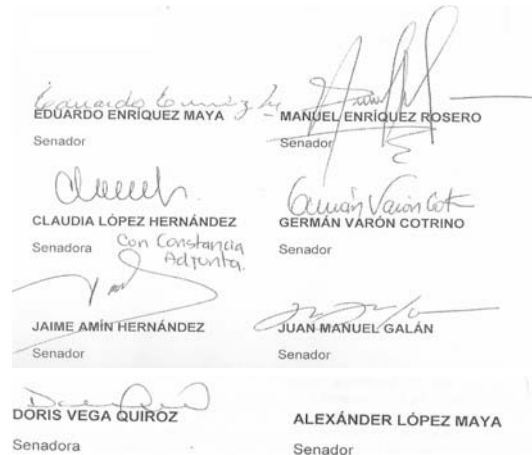 EDUARDO ENRÍQUEZ MAYA
Senador
MANUEL ENRÍQUEZ ROSERO
Senador
CLAUDIA LÓPEZ HERNÁNDEZ
Senadora
Con Constancia
Adjunta.
Germán Varón Cot
GERMÁN VARÓN COTRINO
Senador
JAIME AMÍN HERNÁNDEZ
Senador
JUAN MANUEL GALÁN
Senador
DORIS VEGA QUIROZ
Senadora
ALEXÁNDER LÓPEZ MAYA
Senador